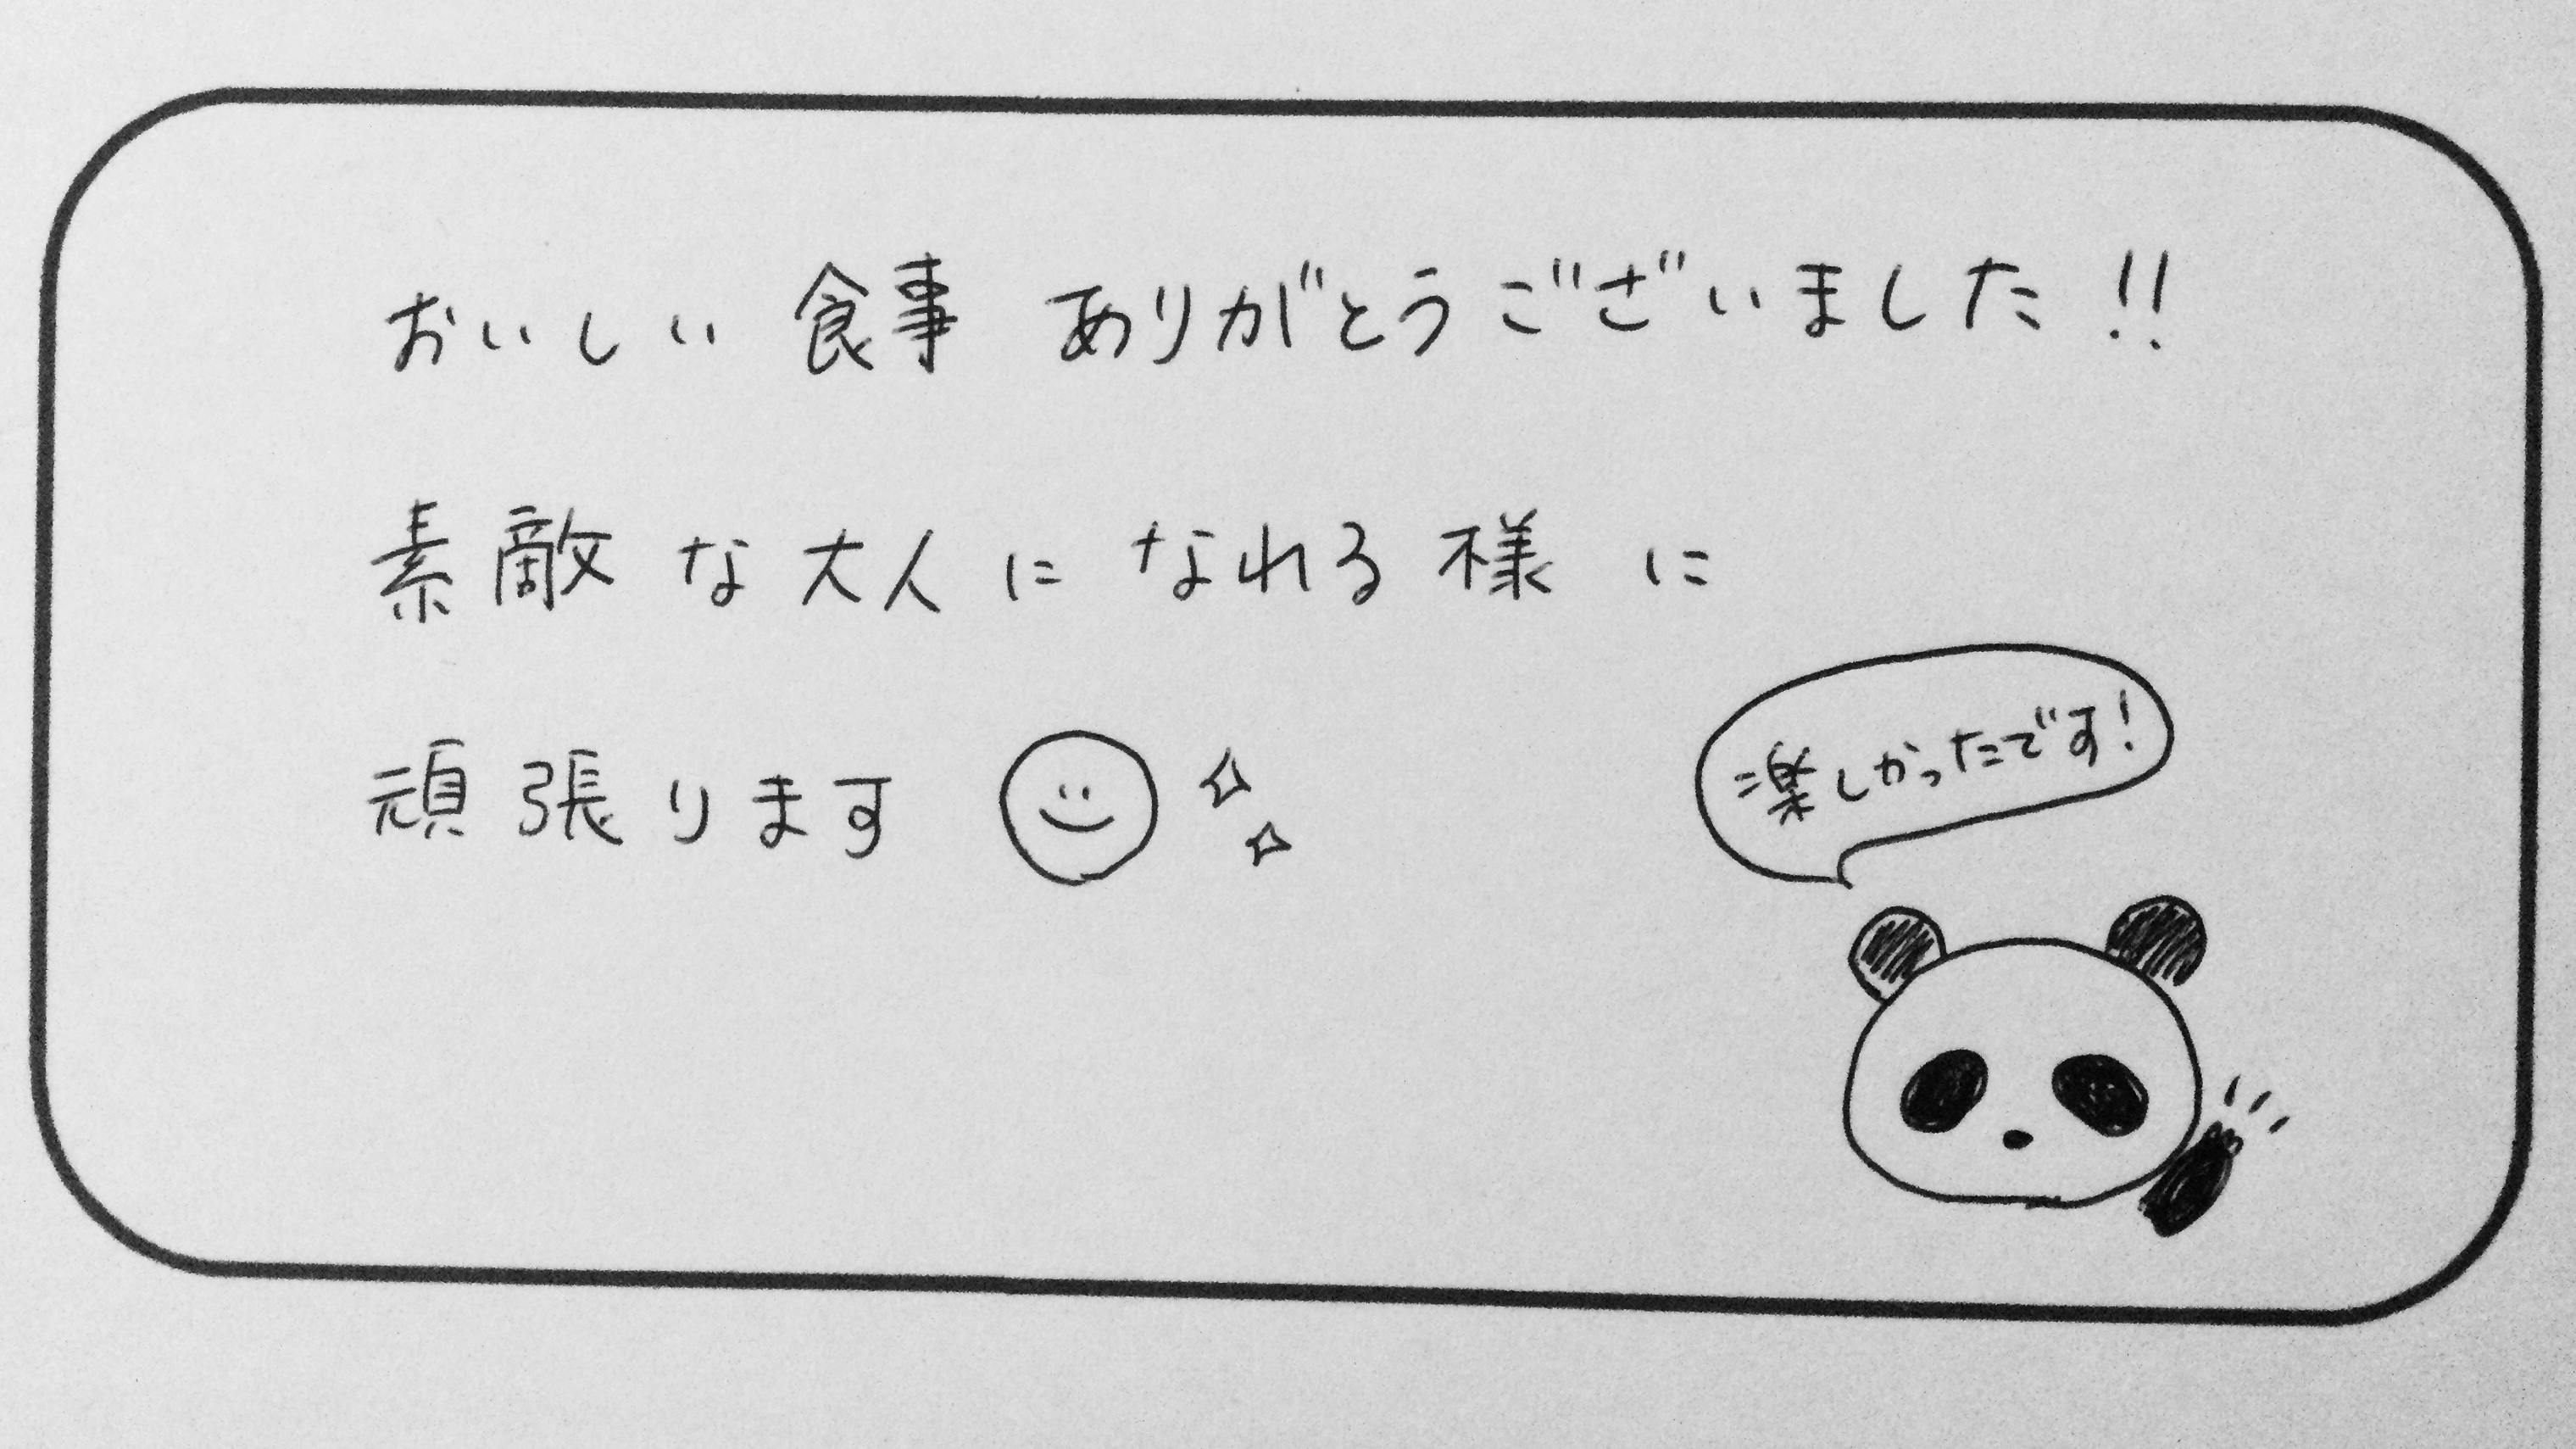 おいしい食事ありがとうございました!!
素敵な大人になれる様に
頑張ります
楽しかったです!